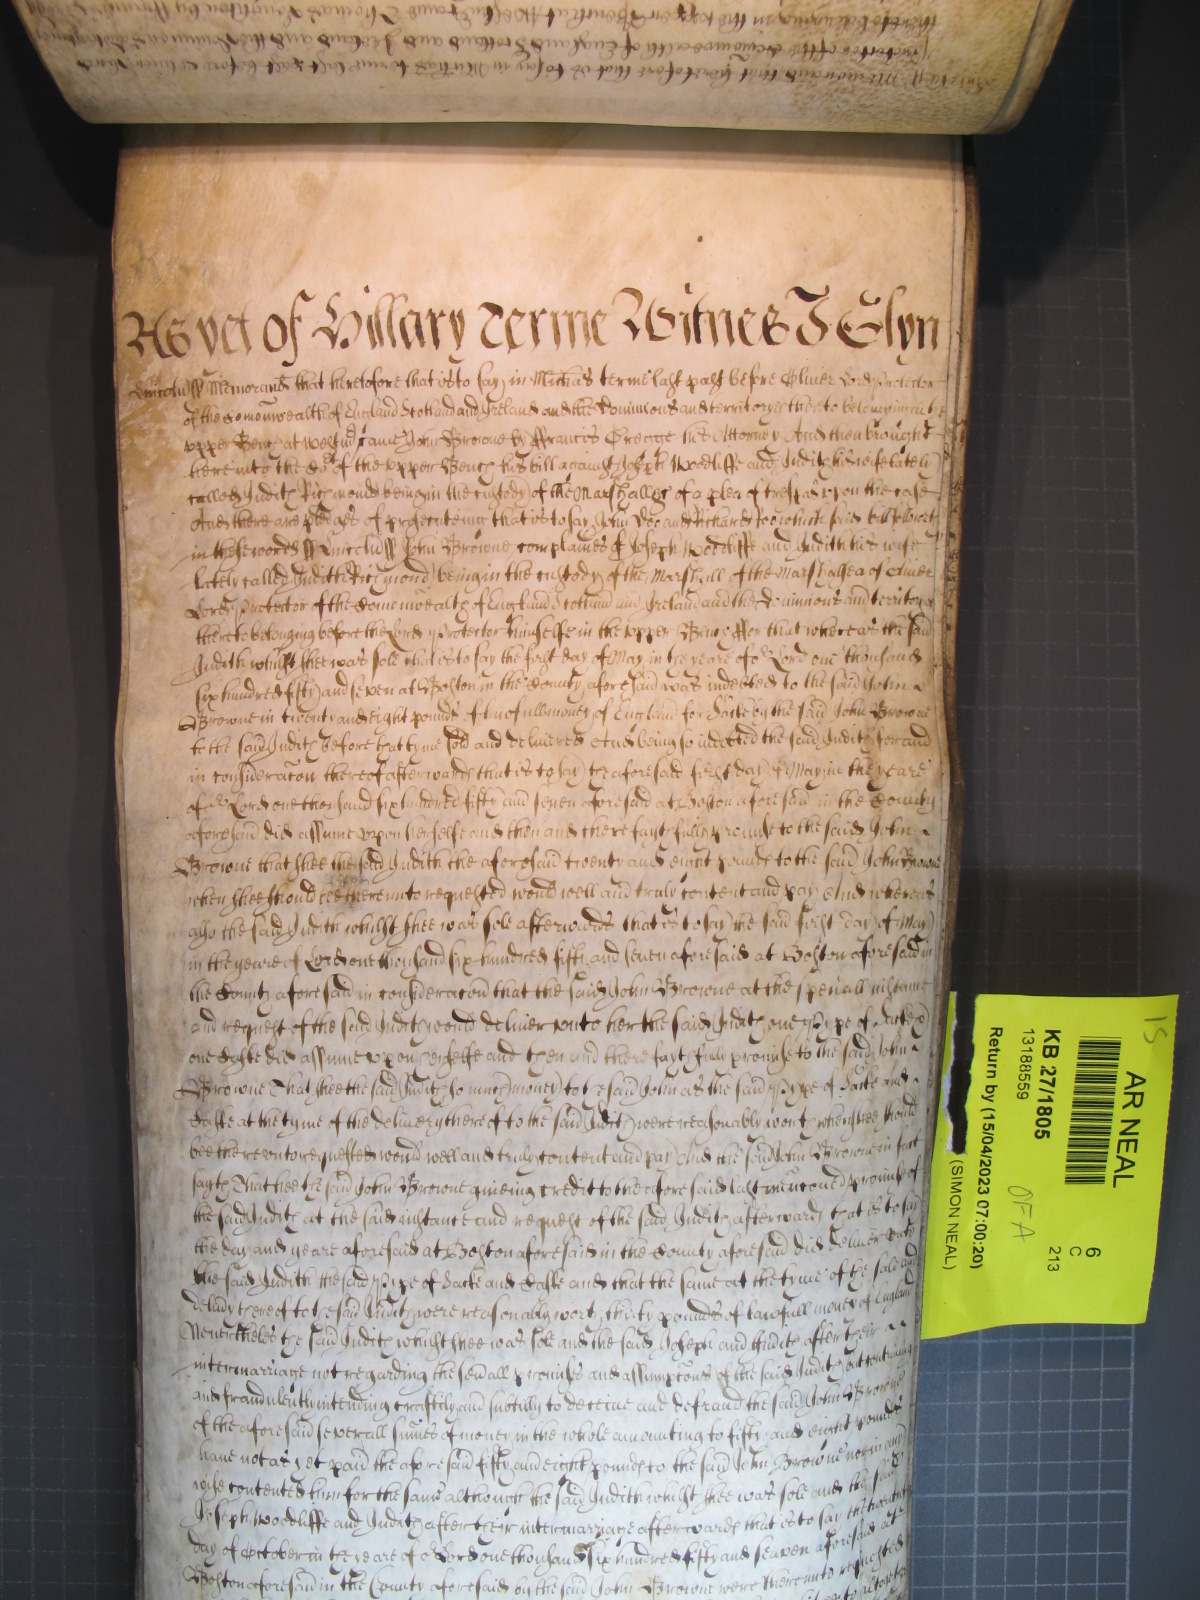 As yet of Hillary Terme Witnes J Glyn
Lincoln ss Memorand that heretofore that is to say in Michas terme last past before Oliver Lord Protector
of the Comonwealth of England Scotland and Ireland and the Dominions and territoryes thereto belonging in the
upper Bench at Westmr came John Browne by Francis Attorney And then brought
here into the Cort of the upper Bench his bill against Joseph Woodliffe and Judith his wife lately
called Judith Richmond being in the custody of the Marshall &c of a plea of trespas upon the case
And there are pledges of prosecuteing that is to say John Doe and Richard Roe which said bill followeth
in these words ss Lincoln ss John Browne complaines of Joseph Woodliffe and Judith his wife
lately called Judith Richmond being in the custody of the Marshall of the Marshalsea of Oliver
Lord Protector of the Comonwealth of England Scotland and Ireland and the Dominions and territoryes
thereto belonging before the Lord Protector himselfe in the upper Bench For that whereas the said
Judith whilst shee was sole that is to say the first day of May in the yeare of or Lord one thousand
six hundred fifty and seven at Boston in the County aforesaid was indebted to the said John
Browne in twenty and eight pounds of lawfull money of England for Sacke by the said John Browne
to the said Judith before that tyme sold and delivered And being so indebted the said Judith for and
in consideracon thereof afterwards that is to say the aforesaid first day of May in the yeare
of or Lord one thousand six hundred fifty and seven aforesaid at Boston aforesaid in the County
aforesaid did assume upon herselfe and then and there faythfully promise to the said John
Browne that shee the said Judith the aforesaid twenty and eight pounds to the said John Browne
when shee should bee thereunto requested would well and truly content and pay And whereas
also the said Judith whilst shee was sole afterwards that is to say the said first day of May
in the yeare of Lord one thousand six hundred fifty and seven aforesaid at Boston aforesaid in
the County aforesaid in consideracon that the said John Browne at the speciall instance
and request of the said Judith would deliver unto her the said Judith one Pype of Sacke
one Caske did assume upon herselfe and then and there faythfully promise to the said John
Browne That shee the said Judith so much money to the said John as the said Pype of Sacke and
Caske at the tyme of the delivery thereof to the said Judith were reasonably worth when shee should
bee thereunto requested would well and truly content and pay And the said John Browne in fact
sayth That hee the said John Browne giveing credit to the aforesaid last menconed promise of
the said Judith at the said instance and request of the said Judith afterwards that is to say
the day and yeare aforesaid at Boston aforesaid in the County aforesaid did deliver unto
the said Judith the said Pype of Sacke and Caske and that the same at the tyme of the sale and
delivery thereof to the said Judith were reasonably worth thirty pounds of lawfull money of England
Neverthelesse the said Judith whilst shee was sole and the said Joseph and Judith after their
intermarriage not regarding the severall promises and assumptions of the said Judith but contriving
and fraudulently intending craftily and subtilly to deceive and defraud the said John Browne
of the aforesaid severall summes of money in the whole amounting to fifty and eight pounds
have not as yet paid the aforesaid fifty and eight pounds to the said John Browne nor in any
wise contented him for the same although the said Judith whilst shee was sole and the said
Joseph Woodliffe and Judith after their intermarriage afterwards that is to say the twentieth
day of October in the yeare of or Lord one thousand six hundred fifty and seaven aforesaid at
Boston aforesaid in the County aforesaid by the said John Browne were thereunto requested
15
AR NEAL
KB 27/1805
13188559
6
C
213
OFA
Return by (15/04/2023 07:00:20)
(SIMON NEAL)